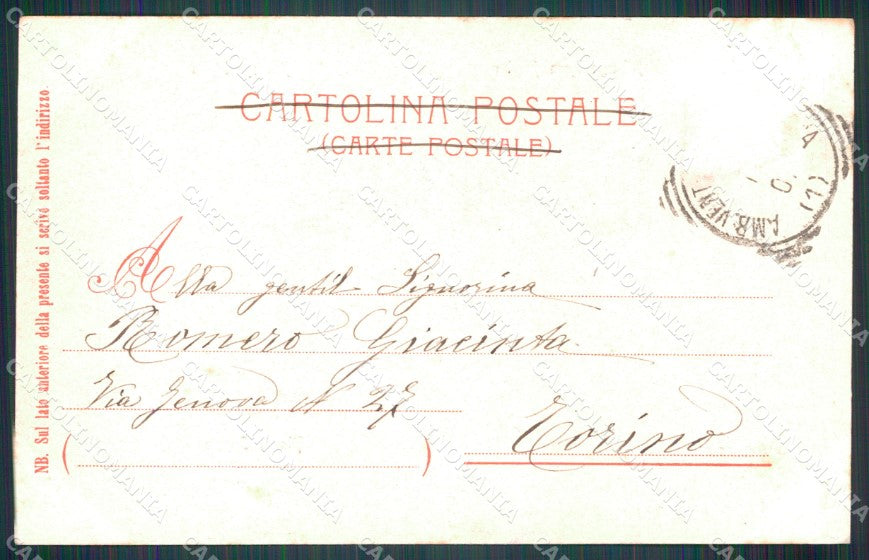 CARTOLINA POSTALE
(CARTE POSTALE)
NB. Sul lato anteriore della presente si scrive soltanto l'indirizzo
AMB. VENT
(1)
Alla gentil Signorina
Romero Giacinta
Via Genova N 27
Torino
CARTOLINOMANIA